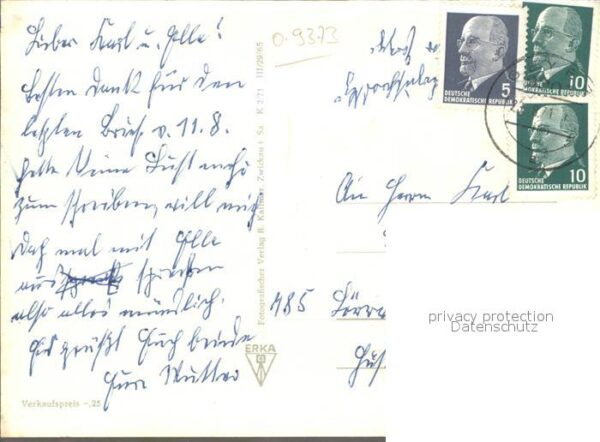 Lieber Karl u. Elle!
besten Dank für den
letzten Brief v. 11.8.
hatte keine Lust mehr
zum schreiben, will mich
doch mal mit Elle
aussprechen
also alles mündlich.
Es grüßt Euch beide
Eure Mutter
Verkaufspreis -.25
Fotografischer Verlag R. Kallmer, Zwickau i. Sa. K 2/71 III/29/65
ERKA
0-9373
5
DEUTSCHE
DEMOKRATISCHE REPUBLIK
10
DEUTSCHE
DEMOKRATISCHE REPUBLIK
10
DEUTSCHE
DEMOKRATISCHE REPUBLIK
An Herrn Karl
785 Lörra
privacy protection
Datenschutz